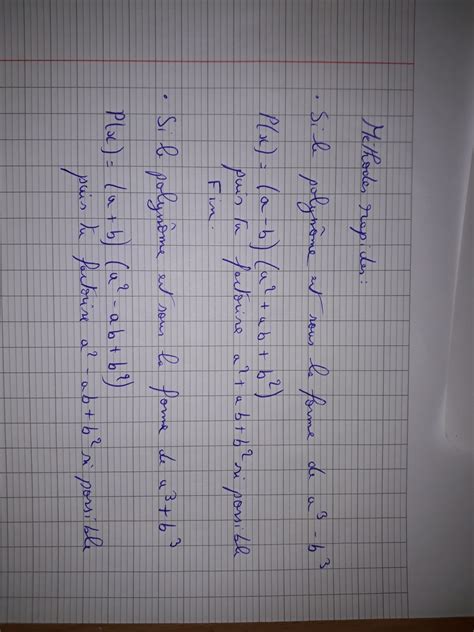 Méthodes rapides :
• Si le polynôme est sous la forme de a³ - b³
P(x) = (a - b) (a² + ab + b²)
puis tu factorise a² + ab + b² si possible
Fin.
• Si le polynôme est sous la forme de a³ + b³
P(x) = (a + b) (a² - ab + b²)
puis tu factorise a² - ab + b² si possible